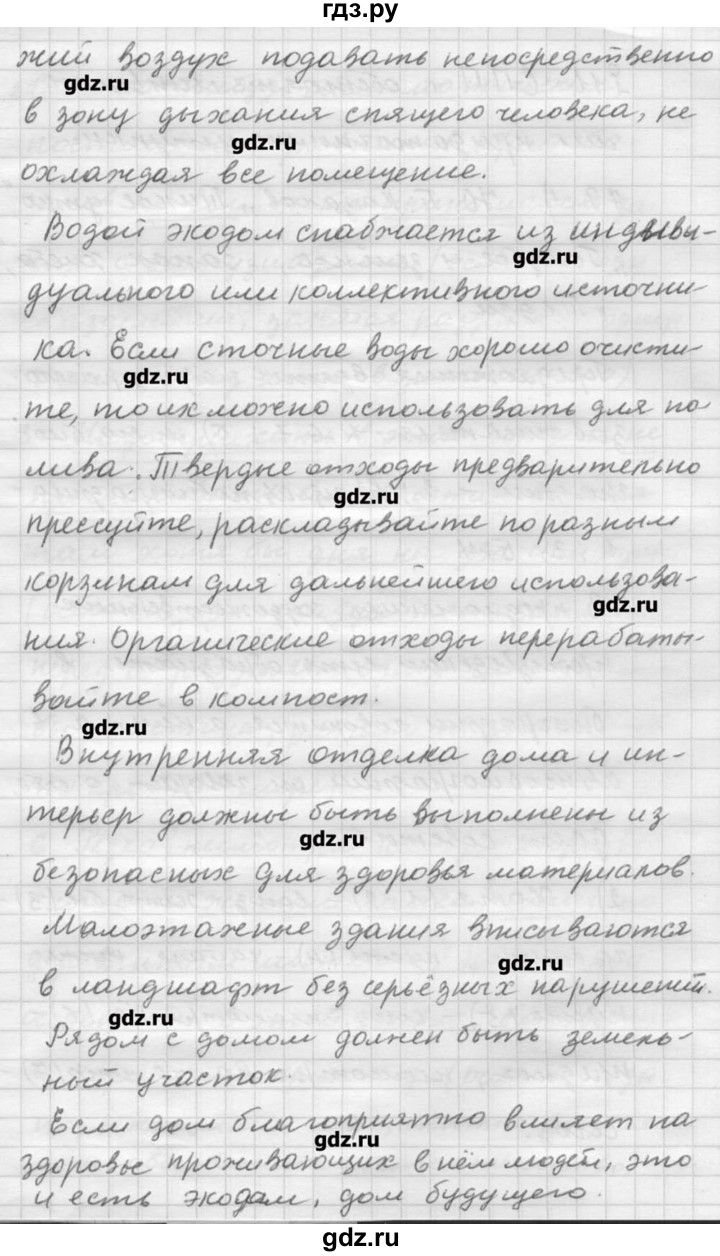 гдз.ру
жий воздух подавать непосредственно
gdz.ru
в зону дыхания спящего человека, не
gdz.ru
охлаждая все помещение.
Водой экодом снабжается из индиви-
gdz.ru
дуального или коллективного источни-
ка. Если сточные воды хорошо очисти-
gdz.ru
те, то их можно использовать для по
лива. Твердые отходы предварительно
gdz.ru
прессуйте, раскладывайте по разным
корзинам для дальнейшего использова-
gdz.ru
ния. Органические отходы перерабаты-
вайте в компост.
gdz.ru
Внутренняя отделка дома и ин-
терьер должны быть выполнены из
gdz.ru
безопасных для здоровья материалов.
Малоэтажные здания вписываются
gdz.ru
в ландшафт без серьёзных нарушений.
gdz.ru
Рядом с домом должен быть земель-
ный участок.
Если дом благоприятно влияет на
gdz.ru
здоровье проживающих в нём людей, это
и есть экодом, дом будущего.
gdz.ru